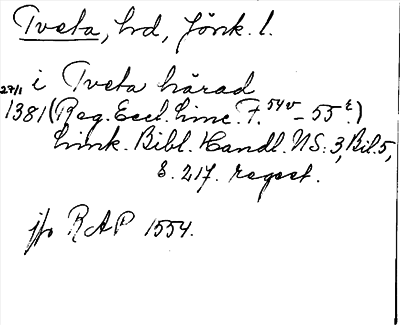 Tveta, hd, Jönk. l.
i Tveta härad
27/1 1381 (Reg. Eccl. Linc. F. 54v – 55r.)
Link. Bibl. Handl. NS: 3, Bil. 5,
s. 217. regest.
jfr RAP 1554.